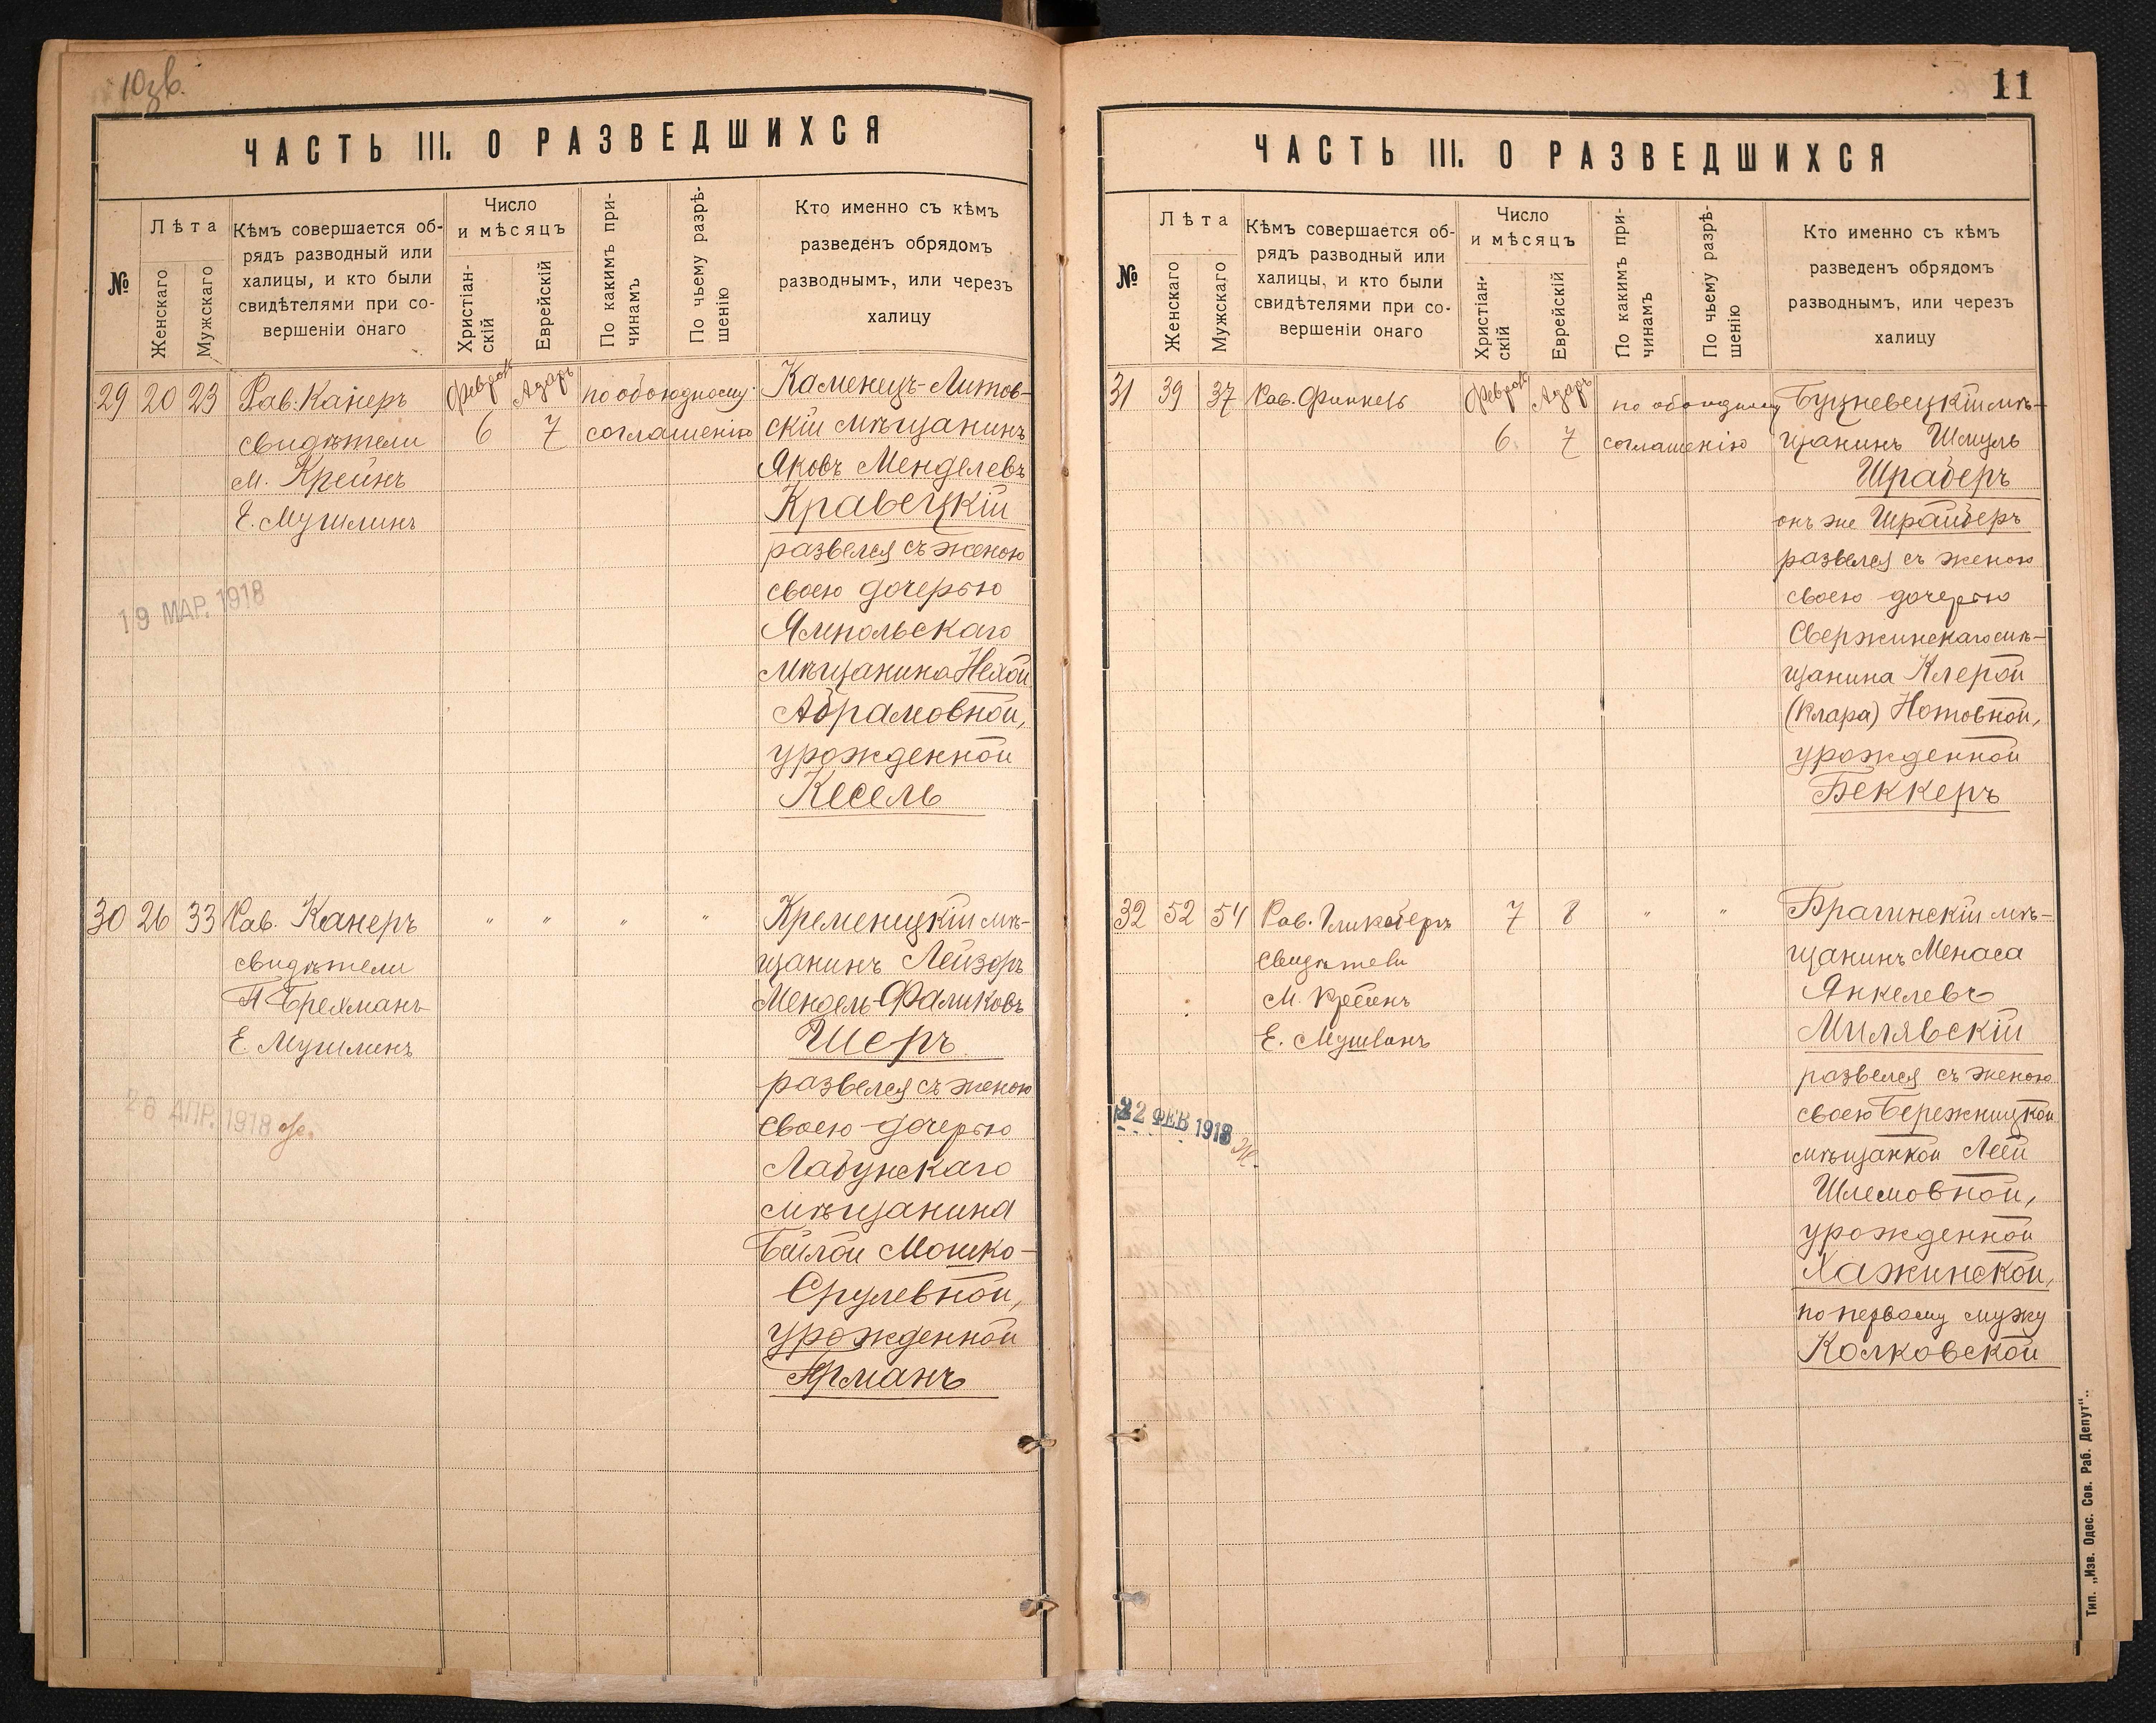 10зв.
ЧАСТЬ III. О РАЗВЕДШИХСЯ
№
Лѣта
Женскаго
Мужскаго
Кѣмъ совершается об-
рядъ разводный или
халицы, и кто были
свидѣтелями при со-
вершеніи онаго
Число
и мѣсяцъ
Христіан-
скій
Еврейскій
По какимъ при-
чинамъ
По чьему разрѣ-
шенію
Кто именно съ кѣмъ
разведенъ обрядомъ
разводнымъ, или черезъ
халицу
29 20 23 Рав. Канеръ Февраль Адаръ по обоюдному Каменецъ-Литов-
свидѣтели 6 7 соглашенію скій мѣщанинъ
М. Крейнъ Яковъ Менделевъ
Кравецкій
Е. Мушлинъ
развелся съ женою
своею дочерью
19 МАР. 1918
Ямпольскаго
мѣщанина Нехой
Абрамовной,
урожденной
Кесель
30 26 33 Рав. Канеръ " " " " Кременецкій мѣ-
свидѣтели щанинъ Лейзоръ
П. Брехманъ Мендель-Фаликовъ
Е. Мушлинъ Шеръ
развелся съ женою
26 АПР. 1918
своею дочерью
Лабунскаго
мѣщанина
Бейлой Мошко-
Срулевной,
урожденной
Ярманъ
11
ЧАСТЬ III. О РАЗВЕДШИХСЯ
№
Лѣта
Женскаго
Мужскаго
Кѣмъ совершается об-
рядъ разводный или
халицы, и кто были
свидѣтелями при со-
вершеніи онаго
Число
и мѣсяцъ
Христіан-
скій
Еврейскій
По какимъ при-
чинамъ
По чьему разрѣ-
шенію
Кто именно съ кѣмъ
разведенъ обрядомъ
разводнымъ, или черезъ
халицу
31 39 37 Рав. Финкель Февраль Адаръ по обоюдному Буцневецкій мѣ-
6. 7 соглашенію щанинъ Шмуль
Шраберъ
онъ же Шрайберъ
развелся съ женою
своею дочерью
Свержинскаго мѣ-
щанина Клерой
(Клара) Нотовной,
урожденной
Беккеръ
32 52 54 Рав. 7 8 " " Брагинскій мѣ-
свидѣтели щанинъ Менаса
М. Крейнъ Янкелевъ
Е. Мушлинъ Милявскій
развелся съ женою
22 ФЕВ 1918
своею Бережницкой
мѣщанкой Леей
Шлемовной,
урожденной
Хажинской,
по первому мужу
Колковской
Тип. „Изв. Одес. Сов. Раб. Депут“..